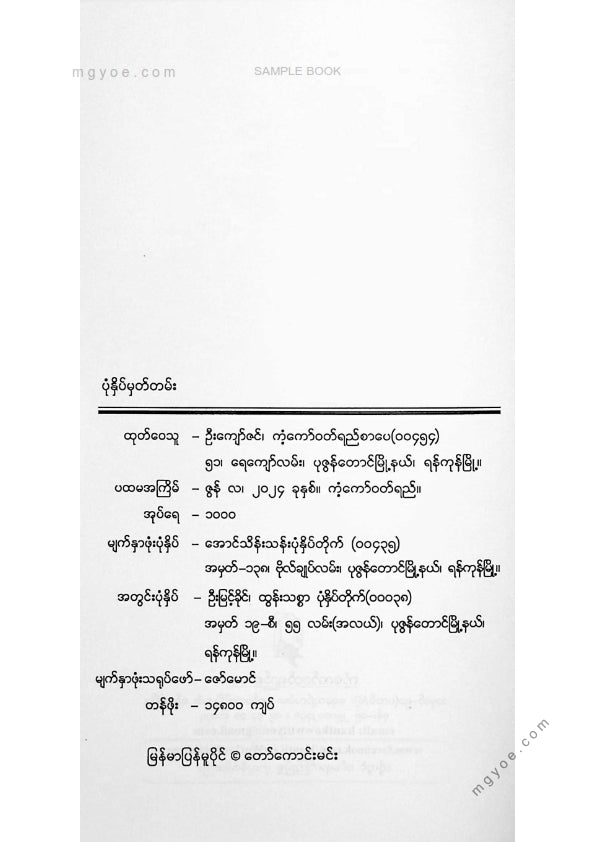 mgyoe.com
SAMPLE BOOK
ပုံနှိပ်မှတ်တမ်း
ထုတ်ဝေသူ – ဦးကျော်ဇင်၊ ကံ့ကော်ဝတ်ရည်စာပေ(၀၀၄၅၄)
၅၁၊ ရေကျော်လမ်း၊ ပုဇွန်တောင်မြို့နယ်၊ ရန်ကုန်မြို့။
ပထမအကြိမ် – ဇွန် လ၊ ၂၀၂၄ ခုနှစ်။ ကံ့ကော်ဝတ်ရည်။
အုပ်ရေ – ၁၀၀၀
မျက်နှာဖုံးပုံနှိပ် – အောင်သိန်းသန်းပုံနှိပ်တိုက် (၀၀၄၃၅)
အမှတ်–၁၃၈၊ ဗိုလ်ချုပ်လမ်း၊ ပုဇွန်တောင်မြို့နယ်၊ ရန်ကုန်မြို့။
အတွင်းပုံနှိပ် – ဦးမြင့်ခိုင်၊ ထွန်းသစ္စာ ပုံနှိပ်တိုက်(၀၀၀၃၈)
အမှတ် ၁၉–စီ၊ ၅၅ လမ်း(အလယ်)၊ ပုဇွန်တောင်မြို့နယ်၊
ရန်ကုန်မြို့။
မျက်နှာဖုံးသရုပ်ဖော် – ဇော်မောင်
တန်ဖိုး – ၁၄၈၀၀ ကျပ်
မြန်မာပြန်မူပိုင် © တော်ကောင်းမင်း
mgyoe.com